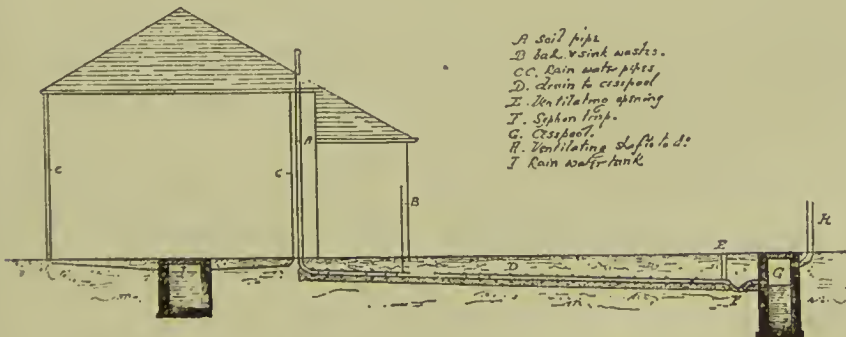 A soil pipe
B bath & sink wastes.
CC. Rain water pipes
D. drain to cesspool
E. Ventilating opening
F. Syphon trap.
G. Cesspool.
H. Ventilating shaft to do:
I Rain water tank
A
C
C
B
H
E
D
I
G
F